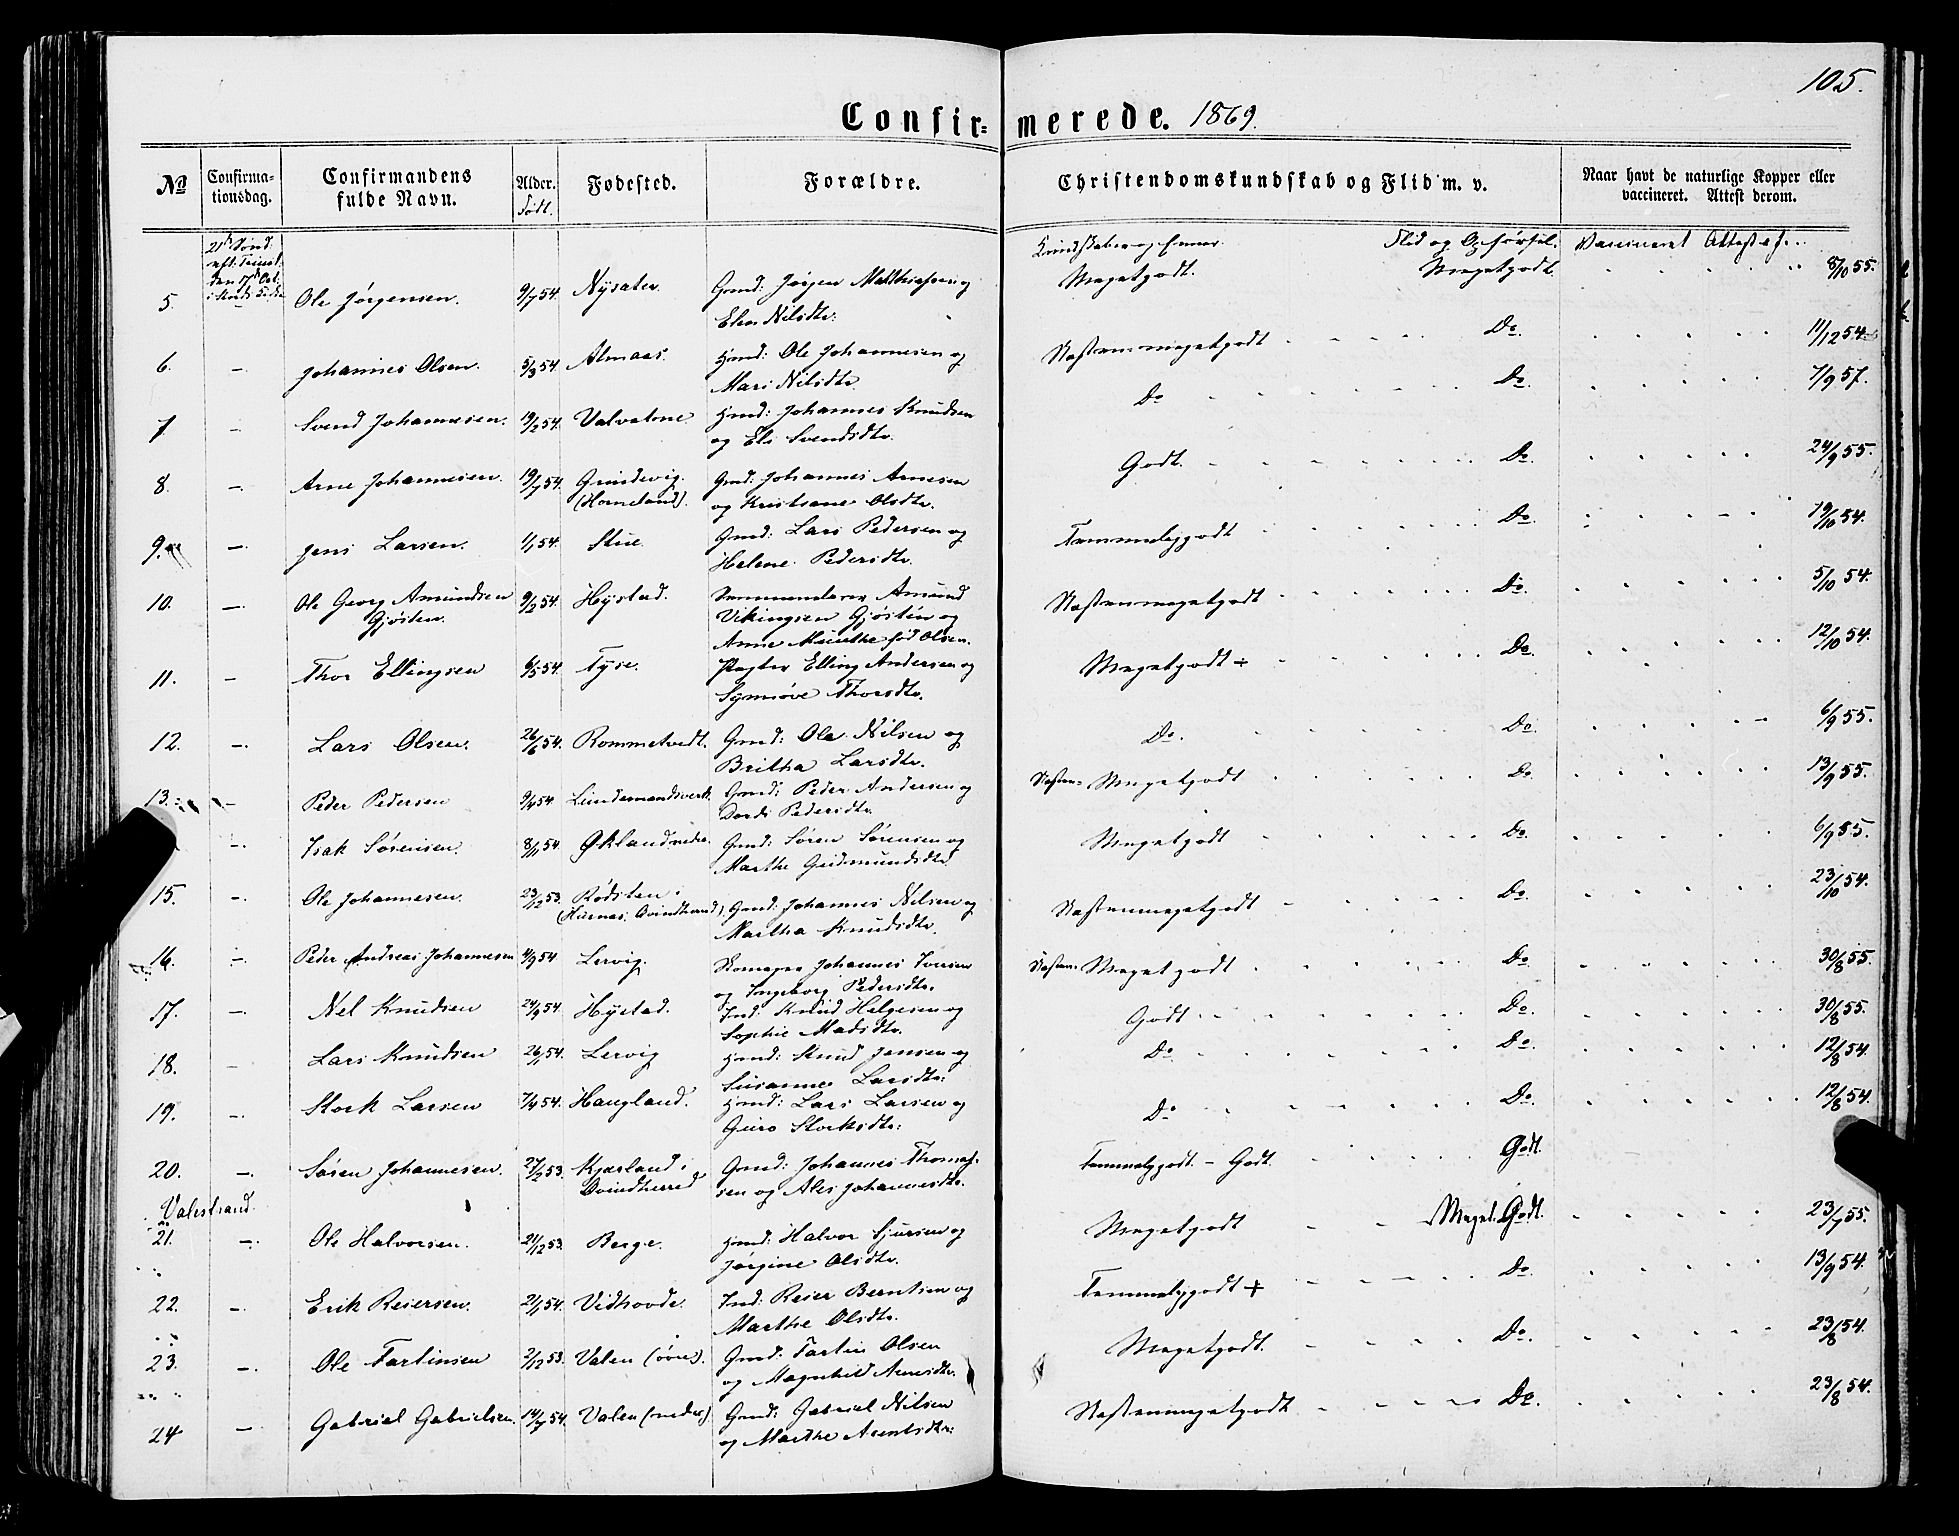 105.
Confir= merede. 1869.
No Confirma-tionsdag. Confirmandens fulde Navn. Alder. Født. Fødested. Forældre. Christendomskundskab og Flid m. v. Naar havt de naturlige Kopper eller vaccineret. Attest derom.
21de Sønd: eft: Trinit. den 17de Oct. Kundskaber og Evner. Flid og Opførsel. Vaccineret Attest af
5. Ole Jørgensen. 9/7 54. Nysæter. Gmd: Jørgen Matthiesen og Meget godt. Meget godt. 8/10 55.
Elen Nilsdtr.
6. – Johannes Olsen. 5/3 54. Almaas. Hmd: Ole Johannesen og Næsten meget godt Do. 11/12 54.
Mari Nilsdtr.
7. – Svend Johannesen. 19/2 54. Valvatne. Hmd: Johannes Knudsen Do Do 7/9 57.
og Eli Svendsdtr.
8. – Arne Johannesen. 19/7 54. Grindevig. Gmd: Johannes Arnesen Godt. Do 24/9 55.
(Horneland). og Kristiane Olsdtr.
9. – Jens Larsen. 1/1 54. Stue. Gmd: Lars Pedersen og Temmeliggodt Do 19/10 54.
Helene Pedersdtr.
10. – Ole Georg Amundsen 9/2 54. Hystad. Amund Næsten meget godt Do 5/10 54.
Gjøsten. Vikingsen Gjøsten og
Anne Munthe fød Olsen.
11. – Thor Ellingsen 6/5 54. Tyse. Pagter Elling Andersen og Meget godt + Do. 12/10 54.
Synnøve Thorsdtr.
12. – Lars Olsen. 26/6 54. Rommetvedt. Gmd: Ole Nilsen og Do. Do 6/9 55.
Britha Larsdtr.
13. – Peder Pedersen 9/4 54 Lundemandsverk. Gmd: Peder Andersen og Næsten Meget godt Do. 13/9 55.
Pedersdtr.
–. Isak Sørensen. 8/11 54. Økland nedre. Gmd: Søren Sørensen og Meget godt Do. 6/9 55.
Marthe Gudmundsdtr
15. –. Ole Johannesen. 23/12 53. Rødsten i Næsten meget godt Do 23/10 54.
(Husnæs, Qvindherred). Gmd: Johannes Nilsen og
Martha Knudsdtr.
16. –. Peder Andreas Johannesen 4/9 54 Lervig. Skomager Johannes Iversen Næsten Meget godt Do 30/8 55.
og Ingeborg Pedersdtr.
17. –. Nel Knudsen 24/9 54. Hystad. Ind: Knud Helgesen og Godt Do. 30/8 55.
Sophie Madsdtr.
18. – Lars Knudsen 26/1 54. Lervig Hmd: Knud Jansen og Do Do. 12/8 54.
Susanne Larsdtr:
19. –. Stork Larsen 7/4 54. Haugland. Hmd: Lars Larsen og Do Do. 12/8 54.
Guro Storksdtr:
20. –. Søren Johannesen. 27/2 53. Kjærland i Gmd: Johannes Thomas- Temmeliggodt – Godt. Godt.
Qvindherred sen og Ales Johannesdtr.
Valestrand.
21. –. Ole Halvorsen. 21/12 53. Berge. Hmd: Halvor Sjursen og Meget godt Meget Godt. 23/7 55.
Jørgine Olsdtr.
22. –. Erik Reiersen. 2/1 54. Vidhovde. Ind: Reier Berntsen og Temmeliggodt + Do 13/9 54.
Marthe Olsdtr.
23. –. Ole Tartinsen 2/12 53. Valen (øvre). Gmd: Tartin Olsen Meget godt. Do. 23/8 54.
og Magnhild Arnesdtr.
24 –. Gabriel Gabrielsen. 14/7 54. Valen (nedre). Gmd: Gabriel Nilsen Næsten meget godt Do. 23/8 54.
og Marthe Arentsdtr: